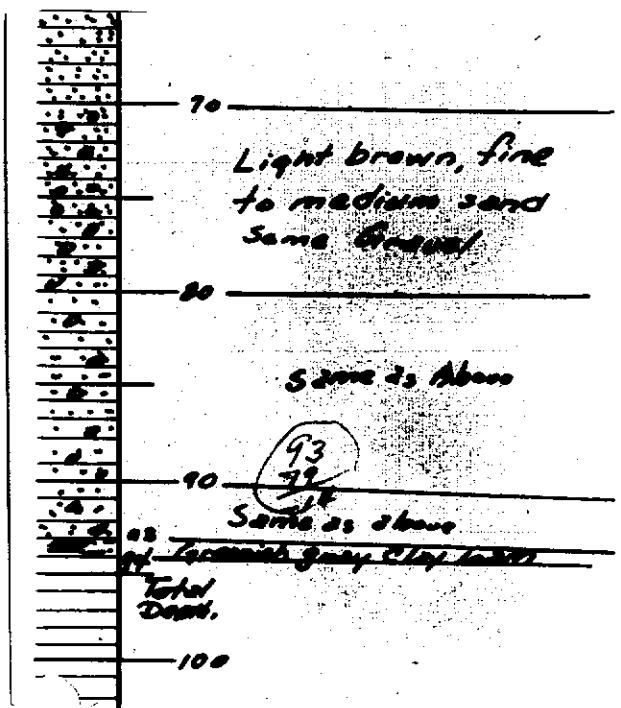 70
Light brown, fine
to medium sand
Some Gravel
80
Same as Above
93
79
14
90
Same as above
93 Greenish gray Clay
94
Total
100